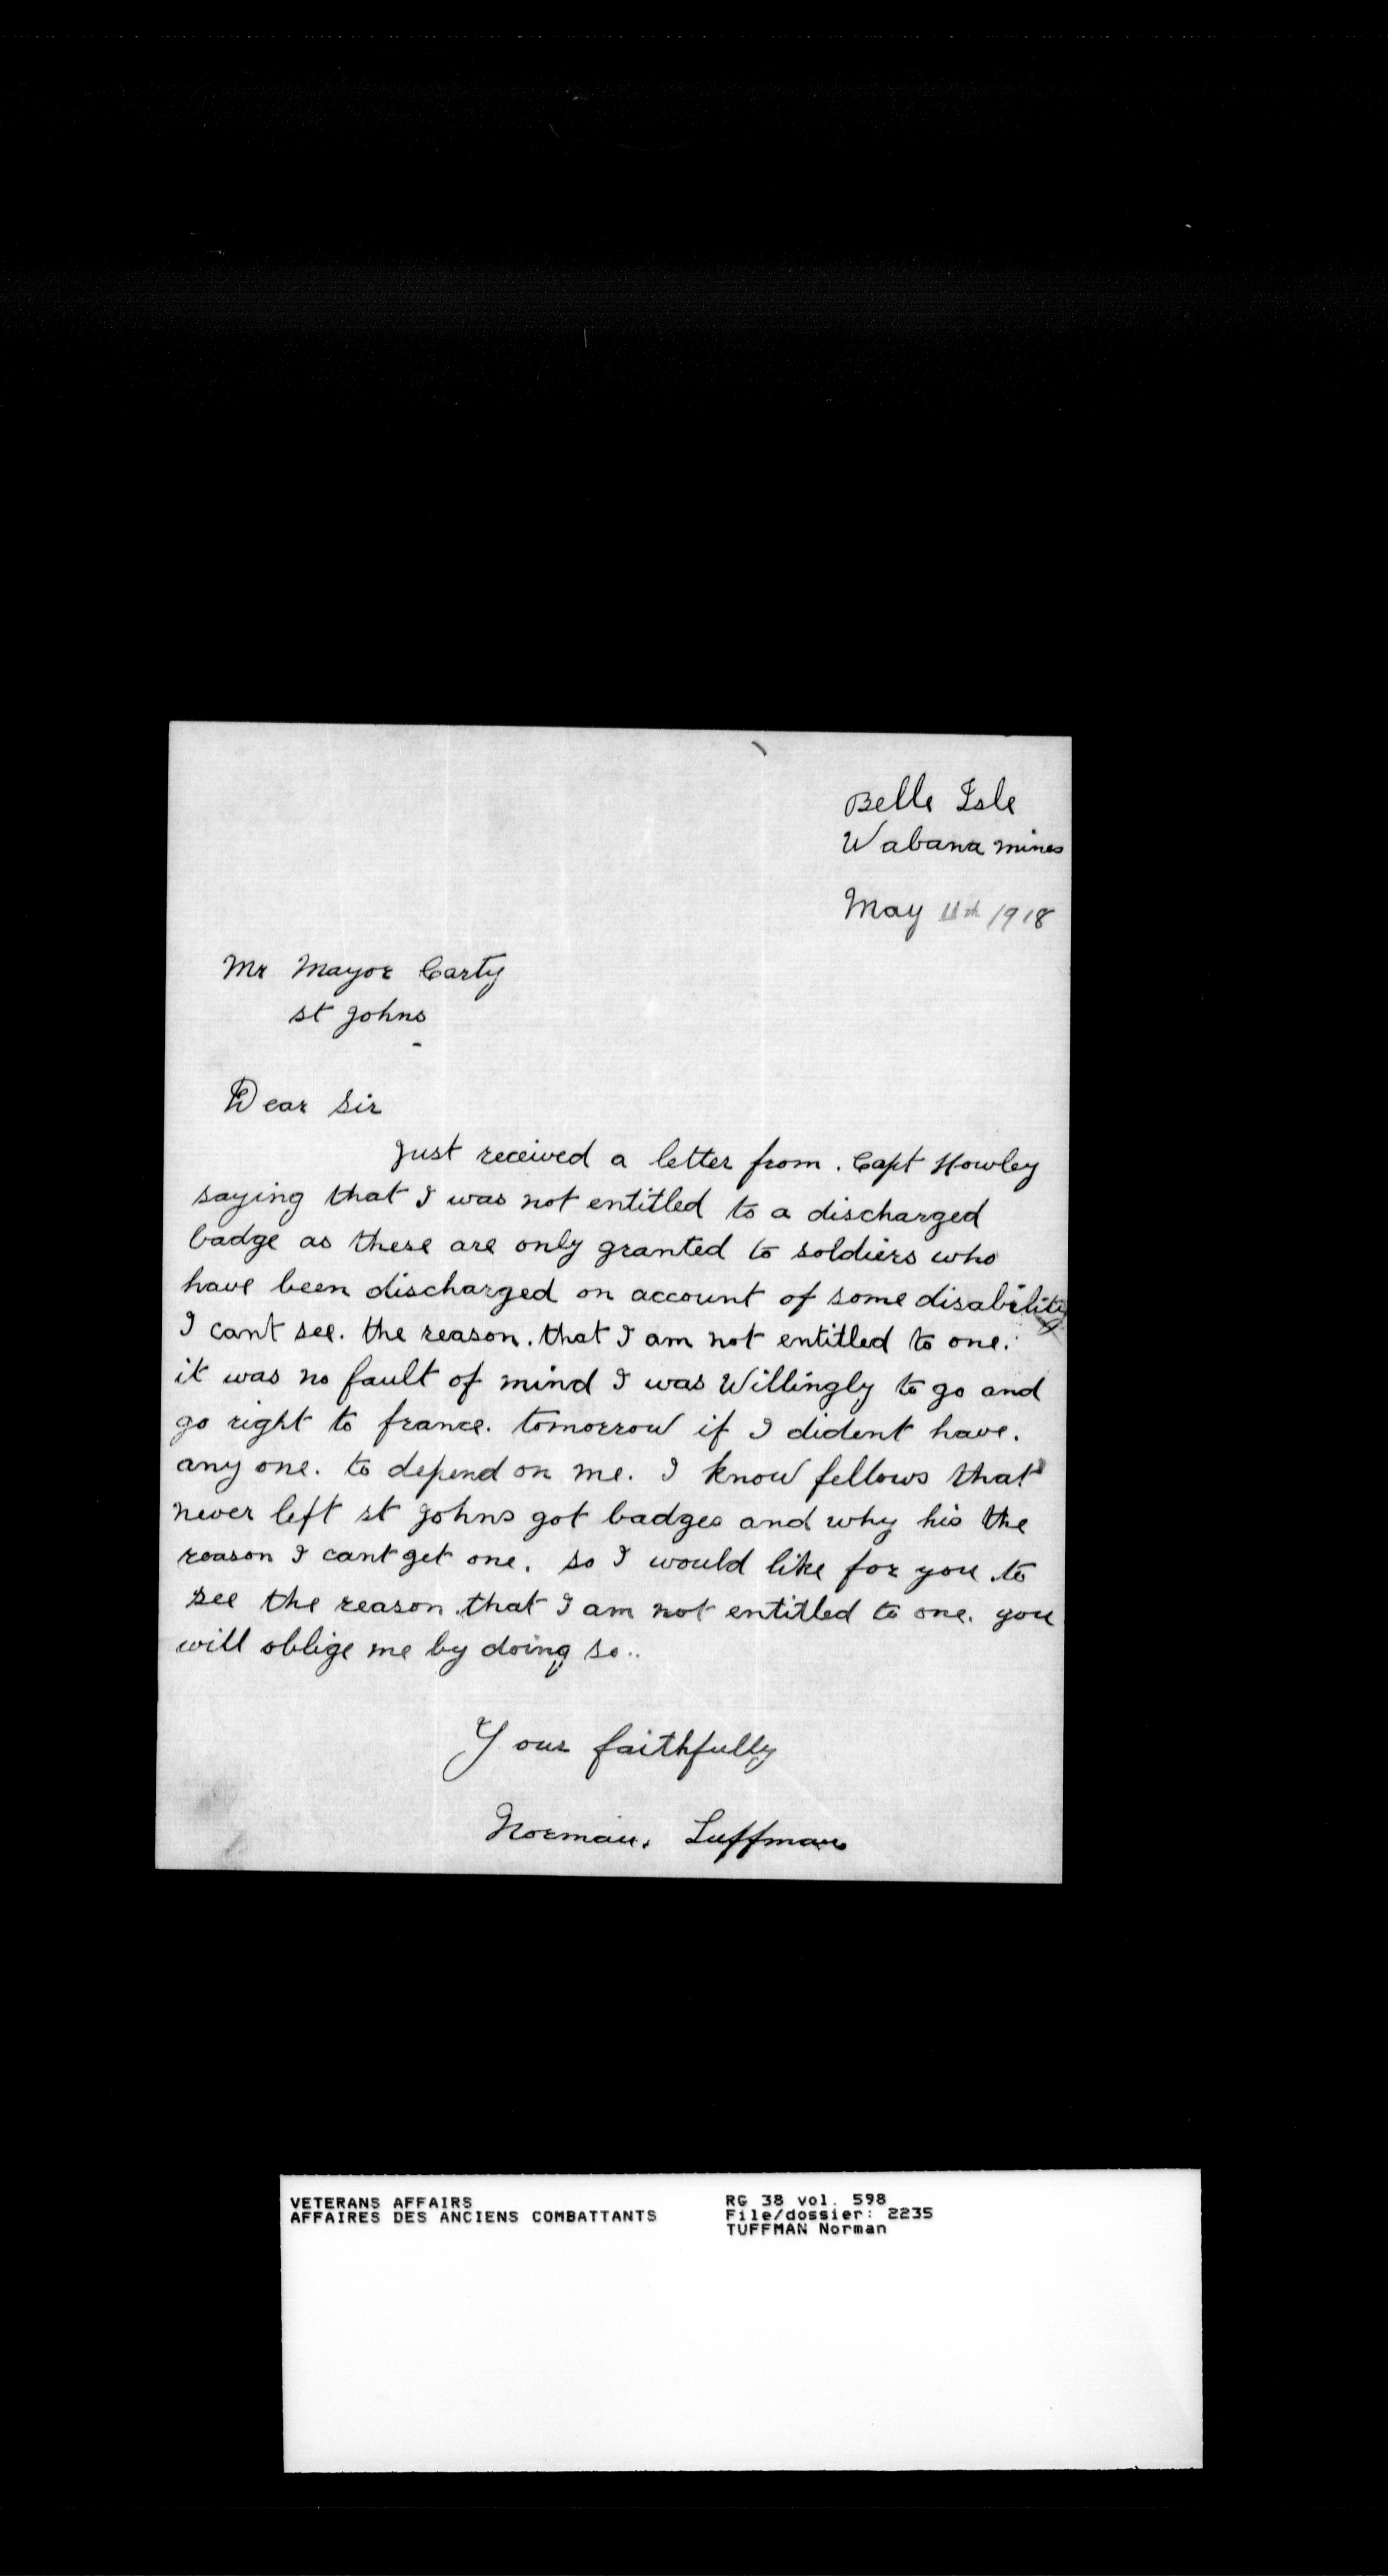 Belle Isle
Wabana mines
May 11th 1918
Mr Mayor Carty
st Johns
Dear Sir
Just received a letter from. Capt Howley
saying that I was not entitled to a discharged
badge as these are only granted to soldiers who
have been discharged on account of some disability
I cant see. the reason. that I am not entitled to one.
it was no fault of mind I was Willingly to go and
go right to france. tomorrow if I dident have.
any one. to depend on me. I know fellows that
never left st Johns got badges and why his the
reason I cant get one. so I would like for you to
see the reason that I am not entitled to one. you
will oblige me by doing so..
Your faithfully
Norman. Luffman
VETERANS AFFAIRS
AFFAIRES DES ANCIENS COMBATTANTS
RG 38 vol. 598
File/dossier: 2235
TUFFMAN Norman